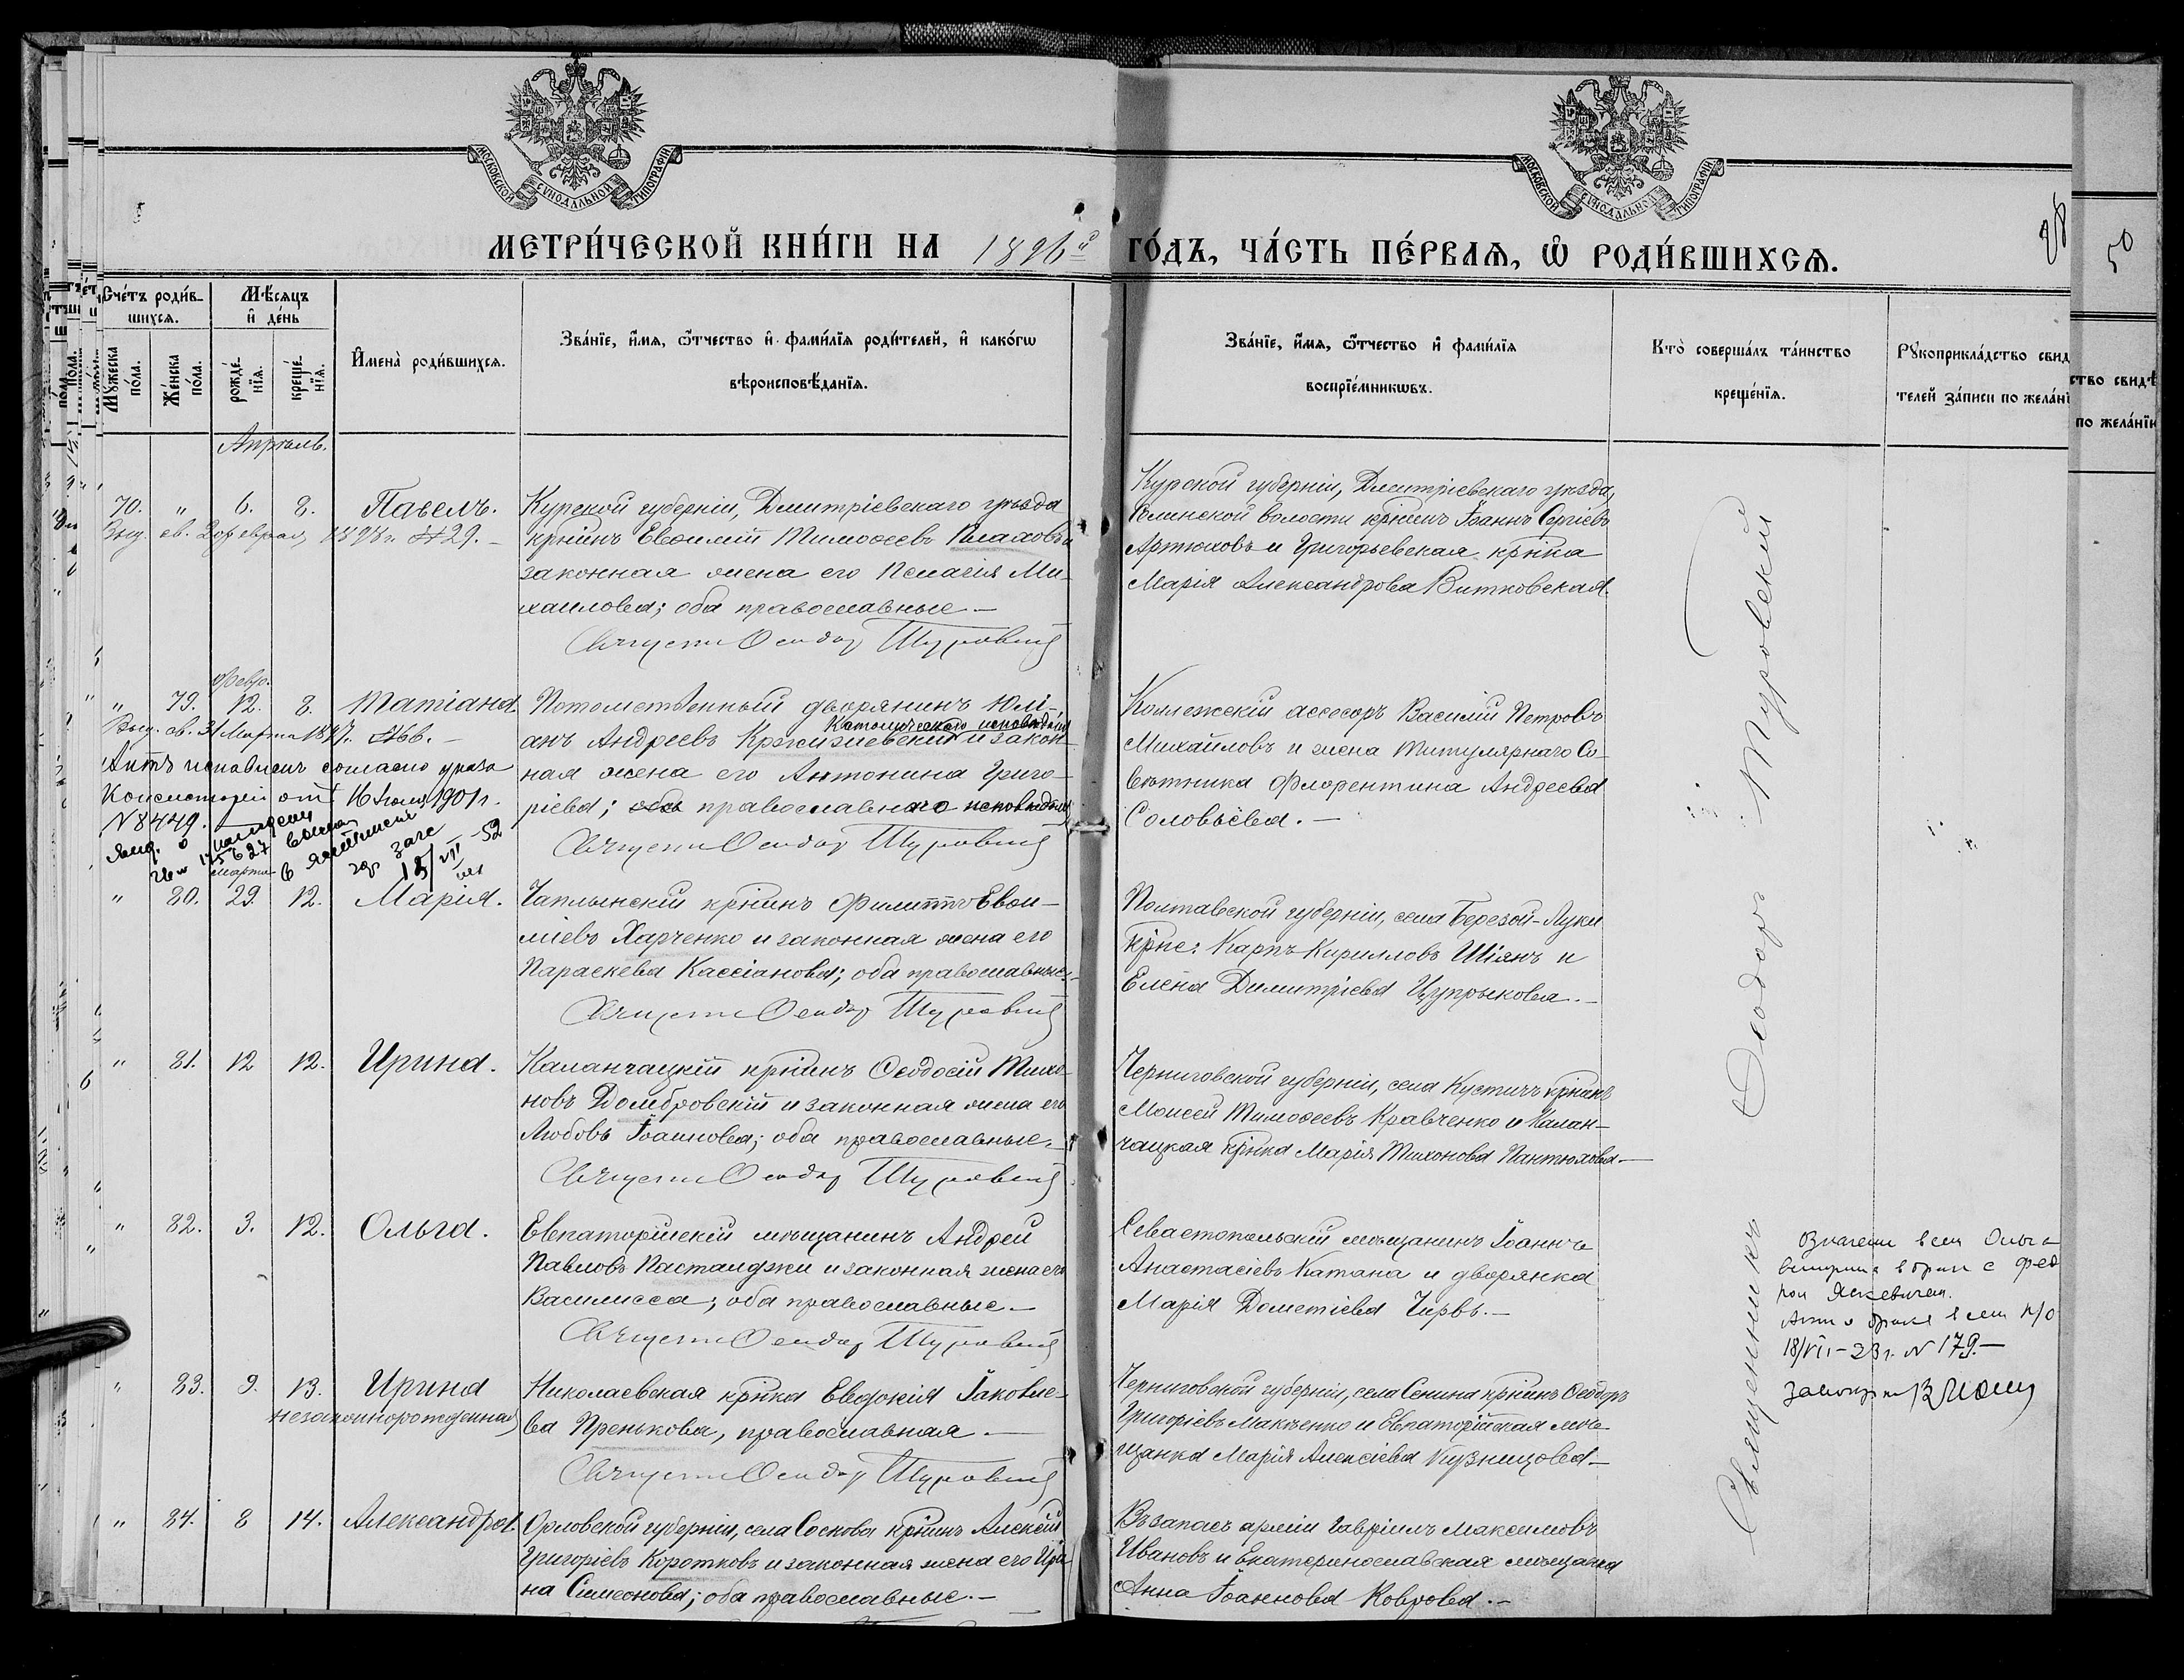 МОСКОВСКОЙ СѴНОДАЛЬНОЙ ТИПОГРАФІИ
МОСКОВСКОЙ СѴНОДАЛЬНОЙ ТИПОГРАФІИ
МЕТРИ́ЧЕСКОЙ КНИ́ГИ НА 1896й ГО́ДЪ, ЧА́СТЬ ПЕ́РВАѦ, Ѡ РОДИ́ВШИХСѦ.
50
Счéтъ роди́в-
шихсѧ.
Мѣ́сѧцъ
и҆ де́нь
Мꙋ́жеска
по́ла.
Же́нска
по́ла.
рожде́-
нїѧ.
креще́-
нїѧ.
И҆мена̀ роди́вшихсѧ.
Зва́нїе, и҆́мѧ, ѻ҆́тчество и҆ фами́лїѧ роди́телей, и҆ како́гѡ
вѣроисповѣ́данїѧ.
Зва́нїе, и҆́мѧ, ѻ҆́тчество и҆ фами́лїѧ
воспрїе́мникѡвъ.
Кто̀ соверша́лъ та́инство
креще́нїѧ.
Рꙋкоприкла́дство свид
телей за́писи по жела́нї
ство свидѣ
по жела́нїю
Апрѣль.
70. " 6. 8. Павелъ.
Выд. св. 2 февраля 1898 г. №29.
Курской губерніи, Дмитріевскаго уѣзда
кр҃нинъ Евѳимій Тимоѳеевъ Плаховъ и
законная жена его Пелагія Ми-
хаилова; оба православные —
Священникъ Ѳеодоръ Туровскій
Курской губерніи, Дмитріевскаго уѣзда,
волости кр҃нинъ Іоаннъ Сергіевъ
Артюховъ и Григорьевская кр҃нка
Марія Александрова Витковская.
Февр.
" 79. 12. 8. Татіана.
Выд. св. 31 Марта 1897 г. №66. —
Актъ исправленъ согласно указа
Консисторіи отъ 16 1901 г.
N 8449.
Потомственный дворянинъ Юлі-
анъ Андреевъ Кржижевскій Католическаго исповѣданія и закон-
ная жена его Антонина Григо-
ріева; оба православнаго исповѣданія
Священникъ Ѳеодоръ Туровскій
Коллежскій ассесоръ Василій Петровъ
Михайловъ и жена Титулярнаго Со-
вѣтника Флорентина Андреева
Соловьёва. —
марта
" 80. 29. 12. Марія.
Чаплынскій кр҃нинъ Филиппъ Евѳи-
міевъ Харченко и законная жена его
Параскева Кассіанова; оба православные. —
Священникъ Ѳеодоръ Туровскій
Полтавской губерніи, села Березой-Луки
кр҃не: Карпъ Кирилловъ Шіянъ и
Елена Димитріева Цупрыкова. —
" 81. 12 12. Ирина.
Каланчацкій кр҃нинъ Ѳеодосій Тихо-
новъ Домбровскій и законная жена его
Любовь Іоаннова; оба православные. —
Священникъ Ѳеодоръ Туровскій
Черниговской губерніи, села Кустичъ кр҃нинъ
Моисей Тимоѳеевъ Кравченко и Калан-
чацкая кр҃нка Марія Тихонова Пантюхова —
" 82. 3. 12. Ольга.
Евпаторійскій мѣщанинъ Андрей
Павловъ Пастанджи и законная жена его
Василисса; оба православные. —
Священникъ Ѳеодоръ Туровскій
Севастопольскій мѣщанинъ Іоаннъ
Анастасіевъ Катана и дворянка
Марія Дометіева Чирвъ. —
Ольга
в брак с Фед
Яскевичем.
18/VII-23 г. N 179. —
" 83. 9. 13. Ирина
незаконнорожденная
Николаевская кр҃нка Евдокія Іаковле-
ва Пренькова, православная. —
Священникъ Ѳеодоръ Туровскій
Черниговской губерніи, села Сенина кр҃нинъ Ѳеодоръ
Григоріевъ Макѣенко и Евпаторійская мѣ-
щанка Марія Алексіева Кузнецова —
" 84. 8 14. Александра.
Орловской губерніи, села Соскова кр҃нинъ Алексій
Григоріевъ Коротковъ и законная жена его Ири-
на Симеонова; оба православные. —
Въ запасѣ арміи Гавріилъ Максимовъ
Ивановъ и Екатеринославская мѣщанка
Анна Іоаннова Коврова. —
Священникъ Ѳеодоръ Туровскій